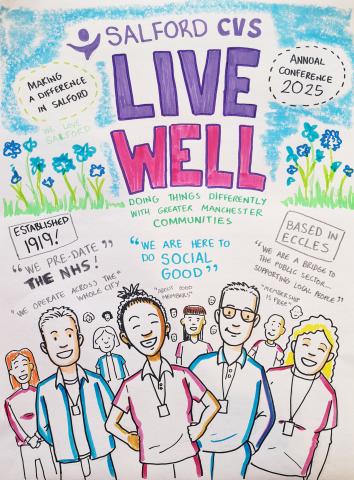 SALFORD CVS
MAKING
A DIFFERENCE
IN SALFORD
ANNUAL
CONFERENCE
2025
WE LOVE
SALFORD
LIVE
WELL
DOING THINGS DIFFERENTLY
WITH GREATER MANCHESTER
COMMUNITIES
ESTABLISHED
1919!
"WE PRE-DATE
THE NHS!"
"WE OPERATE ACROSS THE
WHOLE CITY"
"WE ARE HERE TO
DO SOCIAL
GOOD"
"ABOUT
MEMBERS"
BASED IN
ECCLES
"WE ARE A BRIDGE TO
THE PUBLIC SECTOR...
SUPPORTING LOCAL PEOPLE"
"MEMBERSHIP
IS FREE"